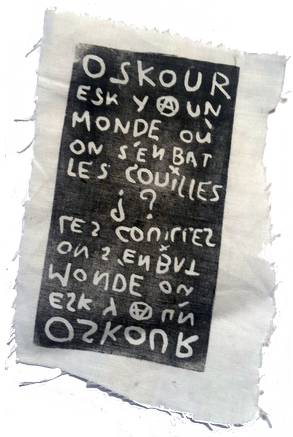 OSKOUR
ESK Y Ⓐ UN
MONDE OÙ
ON S'EN BAT
LES COUILLES
¿?
LES COUILLES
ON S'EN BAT
MONDE OÙ
ESK Y Ⓐ UN
OSKOUR